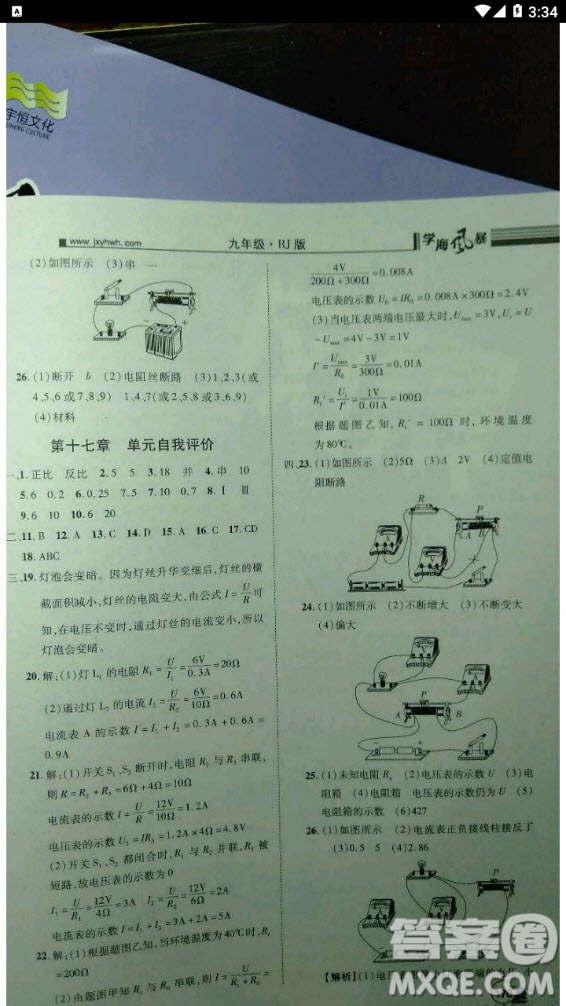 3:34
宇恒文化
www.jxyhwh.com
九年级·RJ版
学海风暴
(2)如图所示 (3)串
26.(1)断开 b (2)电阻丝断路 (3)1,2,3(或
4,5,6或7,8,9) 1,4,7(或2,5,8或3,6,9)
(4)材料
第十七章 单元自我评价
一、1.正比 反比 2.5 5 3.18 并 4.串 10
5.6 0.2 6.0.25 7.5 7.10 0.7 8.Ⅰ Ⅲ
9.6 10 10.6 20
二、11.B 12.A 13.C 14.D 15.A 16.C 17.CD
18.ABC
三、19.灯泡会变暗。因为灯丝升华变细后,灯丝的横
截面积减小,灯丝的电阻变大,由公式I=U/R可
知,在电压不变时,通过灯丝的电流变小,所以
灯泡会变暗。
20.解:(1)灯L₁的电阻R₁=U/I₁=6V/0.3A=20Ω
(2)通过灯L₂的电流I₂=U/R₂=6V/10Ω=0.6A
电流表A的示数I=I₁+I₂=0.3A+0.6A=
0.9A
21.解:(1)开关S₁、S₂断开时,电阻R₂与R₃串联,
则R=R₂+R₃=6Ω+4Ω=10Ω
电流表的示数I=U/R=12V/10Ω=1.2A
电压表的示数U₃=IR₃=1.2A×4Ω=4.8V
(2)开关S₁、S₂都闭合时,R₁与R₂并联,R₃被
短路,故电压表的示数为0
I₁=U/R₁=12V/4Ω=3A I₂=U/R₂=12V/6Ω=2A
电流表的示数I=I₁+I₂=3A+2A=5A
22.解:(1)根据题图乙知,当环境温度为40℃时,Rₜ
=200Ω
(2)由题图甲知Rₜ与R₀串联,则I=U/(Rₜ+R₀)=
4V/(200Ω+300Ω)=0.008A
电压表的示数U₀=IR₀=0.008A×300Ω=2.4V
(3)当电压表两端电压最大时,Umax=3V,Uₜ=U
-Umax=4V-3V=1V
I'=Umax/R₀=3V/300Ω=0.01A
Rₜ'=Uₜ/I'=1V/0.01A=100Ω
根据题图乙知,Rₜ'=100Ω时,环境温度
为80℃。
四、23.(1)如图所示 (2)5Ω (3)A 2V (4)定值电
阻断路
R
P
A B
24.(1)如图所示 (2)不断增大 (3)不断变大
(4)偏大
P
A B
25.(1)未知电阻Rₓ (2)电压表的示数U (3)电
阻箱 (4)电阻箱 电压表的示数仍为U (5)
电阻箱的示数 (6)427
26.(1)如图所示 (2)电流表正负接线柱接反了
(3)0.5 5 (4)2.86
P
答案圈
MXQE.COM